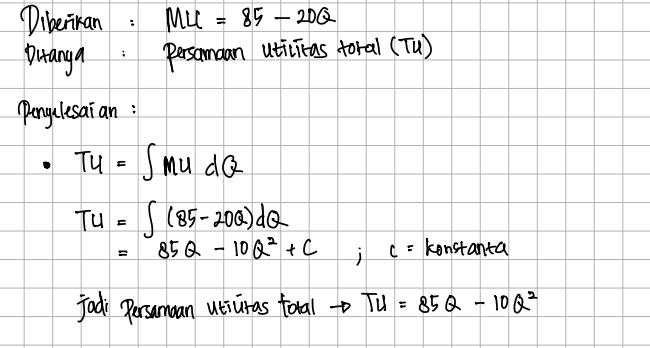 Diberikan : MU = 85 - 20Q
Ditanya : Persamaan utilitas total (TU)
Penyelesaian :
• TU = ∫ MU dQ
TU = ∫ (85-20Q)dQ
= 85Q - 10Q² + C ; C = konstanta
jadi Persamaan utilitas total → TU = 85Q - 10Q²